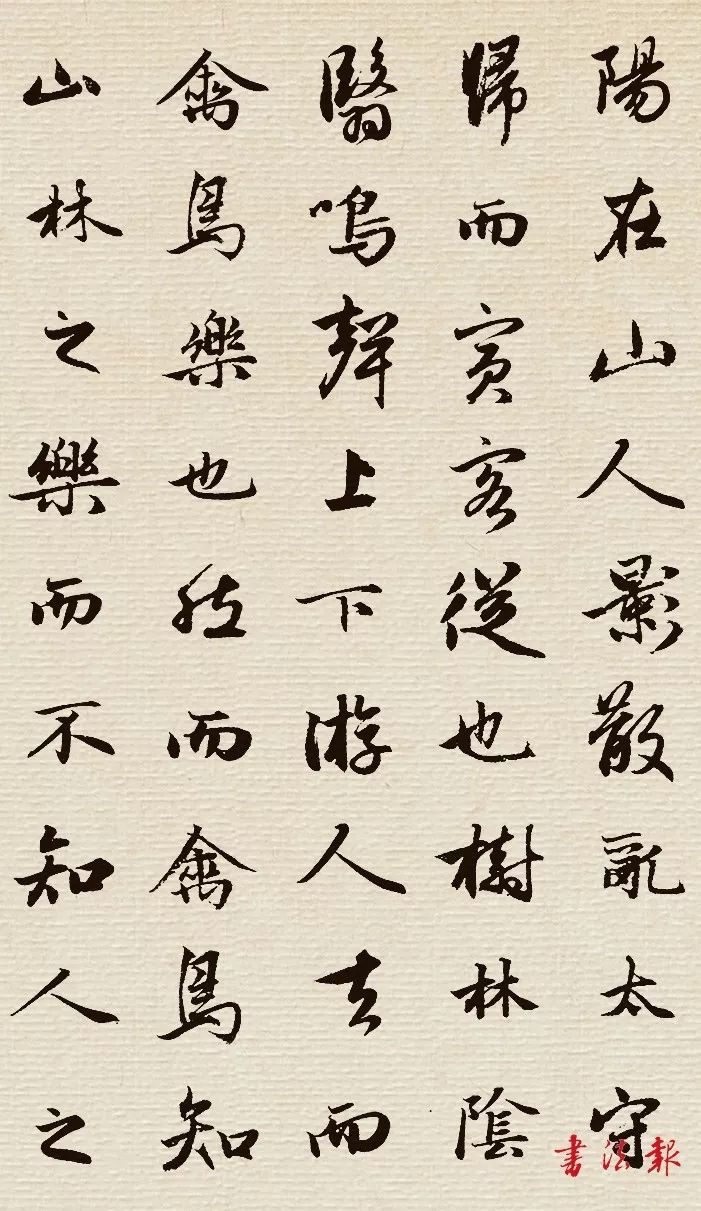 陽在山人影散亂太守
歸而賓客從也樹林陰
翳鳴聲上下游人去而
禽鳥樂也然而禽鳥知
山林之樂而不知人之
書法報